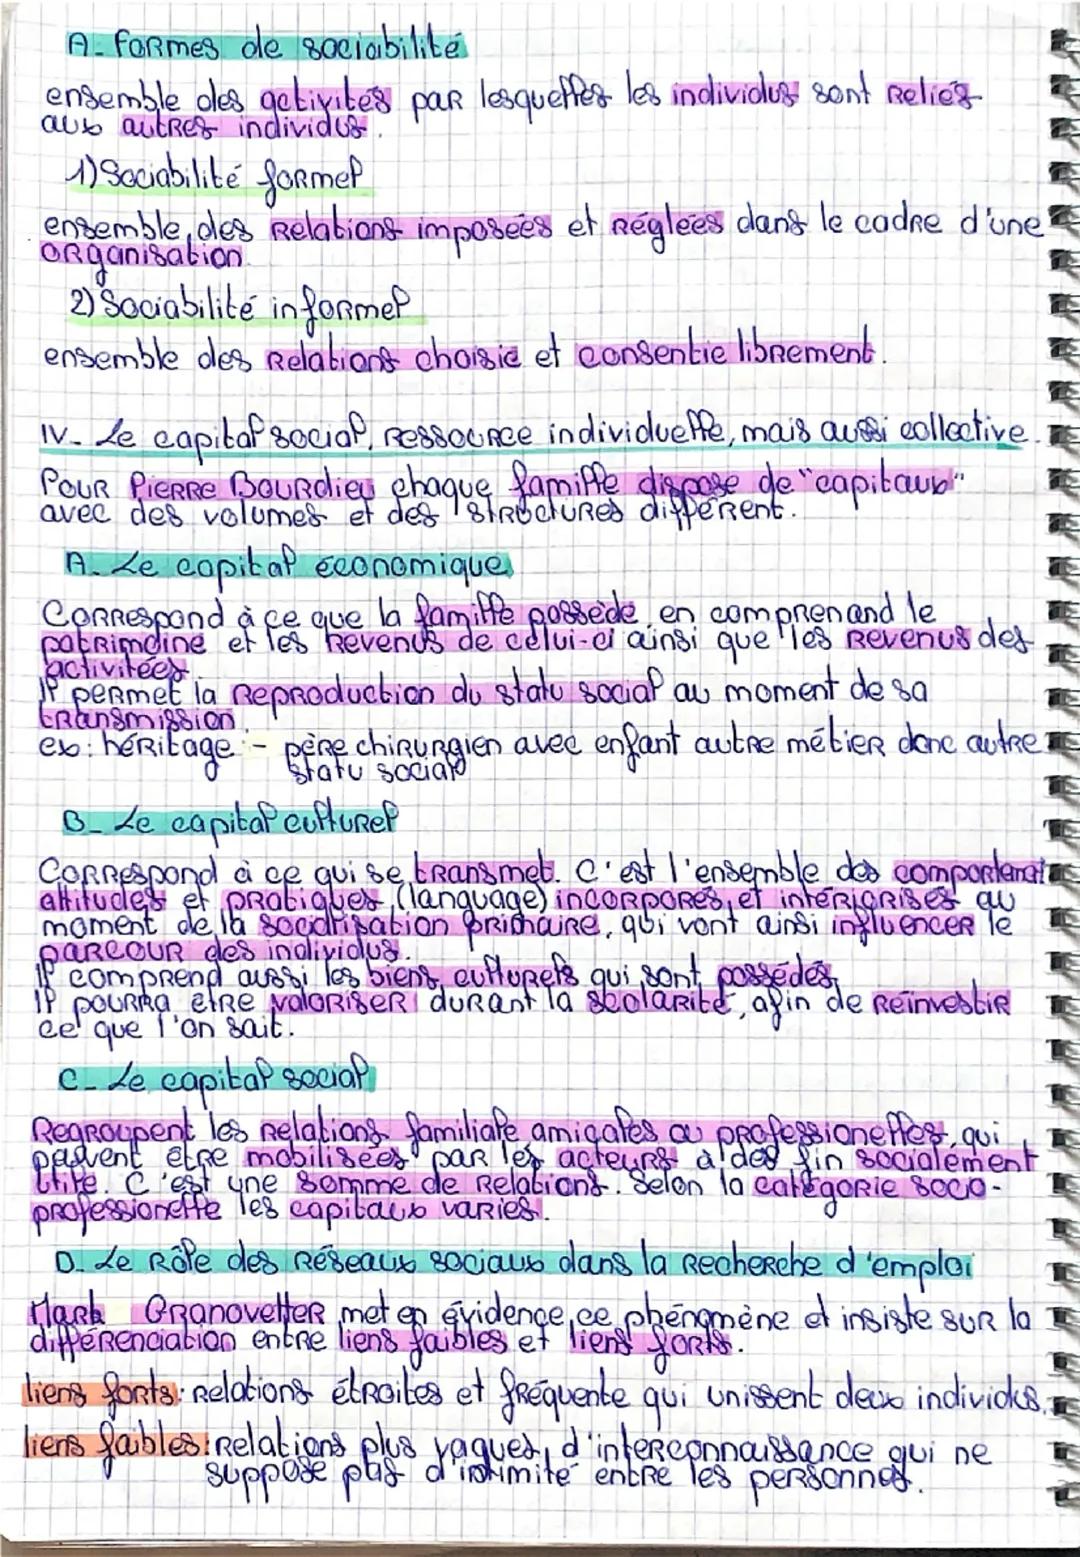 A- formes de sociabilité
ensemble des activités par lesquelles les individus sont reliés
aux autres individus.
1) Sociabilité formel
ensemble des relations imposées et réglées dans le cadre d'une
organisation.
2) Sociabilité informel
ensemble des relations choisie et consentie librement.
IV- Le capital social, ressource individuelle, mais aussi collective.
Pour Pierre Bourdieu chaque famille dispose de "capitaux"
avec des volumes et des structures différent.
A- Le capital économique
Correspond à ce que la famille possède en comprenand le
patrimoine et les revenus de celui-ci ainsi que les revenus des
activitées.
Il permet la reproduction du statu social au moment de sa
transmission.
ex: héritage - père chirurgien avec enfant autre métier donc autre
statu social
B- Le capital culturel
Correspond à ce qui se transmet. C'est l'ensemble des comportemat
attitudes et pratiques (language) incorporés et intériorisés au
moment de la socialisation primaire, qui vont ainsi influencer le
parcour des individus.
Il comprend aussi les biens culturels qui sont possédés
Il pourra être valoriser durant la scolarité, afin de réinvestir
ce que l'on sait.
C- Le capital social
Regroupent les relations familiale amigales ou professionelles, qui
peuvent être mobilisées par les acteurs à des fin socialement
utile. C'est une somme de relations. Selon la catégorie socio-
professionelle les capitaux varies.
D- Le rôle des réseaux sociaux dans la recherche d'emploi
Mark Granovetter met en évidence ce phénomène et insiste sur la
différenciation entre liens faibles et liens forts.
liens forts: relations étroites et fréquente qui unissent deux individus.
liens faibles: relations plus vagues, d'interconnaissance qui ne
suppose pas d'intimité entre les personnes.